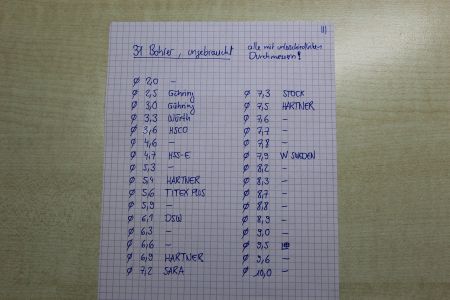 11)
31 Bohrer, ungebraucht
alle mit unterschiedlichen
Durchmessern!
ø 2,0 –
ø 2,5 Gühring
ø 3,0 Gühring
ø 3,3 Würth
ø 3,6 HSCO
ø 4,6 –
ø 4,7 HSS-E
ø 5,3 –
ø 5,4 HARTNER
ø 5,6 TITEX PLUS
ø 5,9 –
ø 6,1 DSW
ø 6,3 –
ø 6,6 –
ø 6,9 HARTNER
ø 7,2 SARA
ø 7,3 STOCK
ø 7,5 HARTNER
ø 7,6 –
ø 7,7 –
ø 7,8 –
ø 7,9 W SWEDEN
ø 8,2 –
ø 8,3 –
ø 8,7 –
ø 8,8 –
ø 8,9 –
ø 9,0 –
ø 9,5
ø 9,6 –
ø 10,0 –